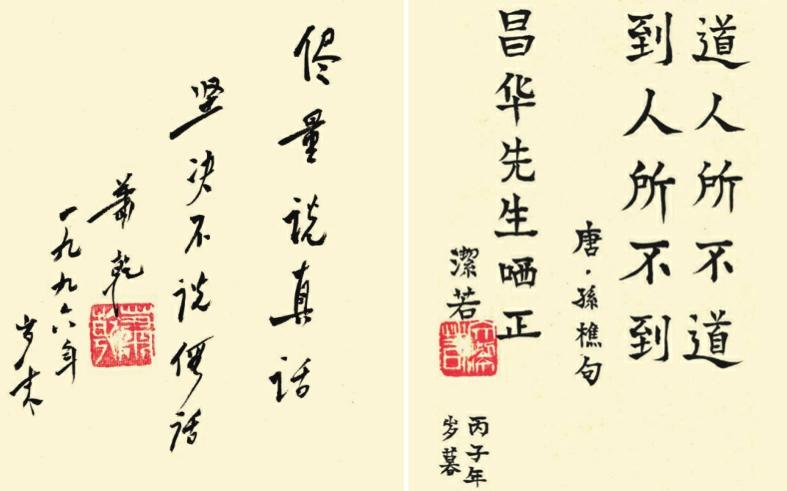 侭量说真话
坚决不说假话
萧乾
一九九六年
岁末
道人所不道
到人所不到
唐·孫樵句
昌华先生哂正
潔若
丙子年
岁暮